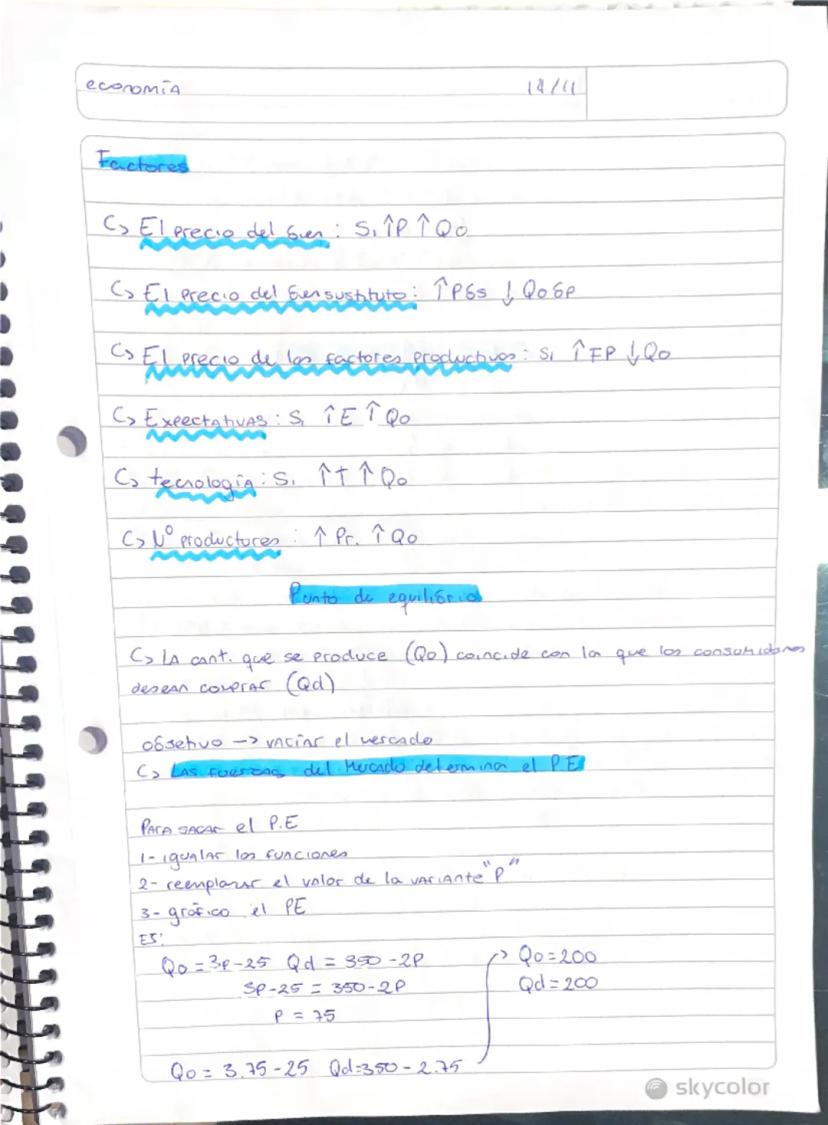 economía 14/11
Factores
↳ El precio del bien: Si ↑P ↑Qo
↳ El precio del bien sustituto: ↑Pbs ↓Qobp
↳ El precio de los factores productivos: Si ↑FP ↓Qo
↳ Expectativas: Si ↑E ↑Qo
↳ tecnología: Si ↑t ↑Qo
↳ Nº productores: ↑Pr. ↑Qo
Punto de equilibrio
↳ LA cant. que se produce (Qo) coincide con la que los consumidores
desean comprar (Qd)
objetivo -> vaciar el mercado
↳ LAS fuerzas del Mercado determinan el P.E
PARA SACAR el P.E
1- igualar las funciones
2- reemplazar el valor de la variante "P"
3- gráfico el PE
EJ:
Qo = 3P-25 Qd = 350-2P
3P-25 = 350-2P
P = 75
Qo = 3.75-25 Qd=350-2.75
-> Qo=200
Qd=200
skycolor